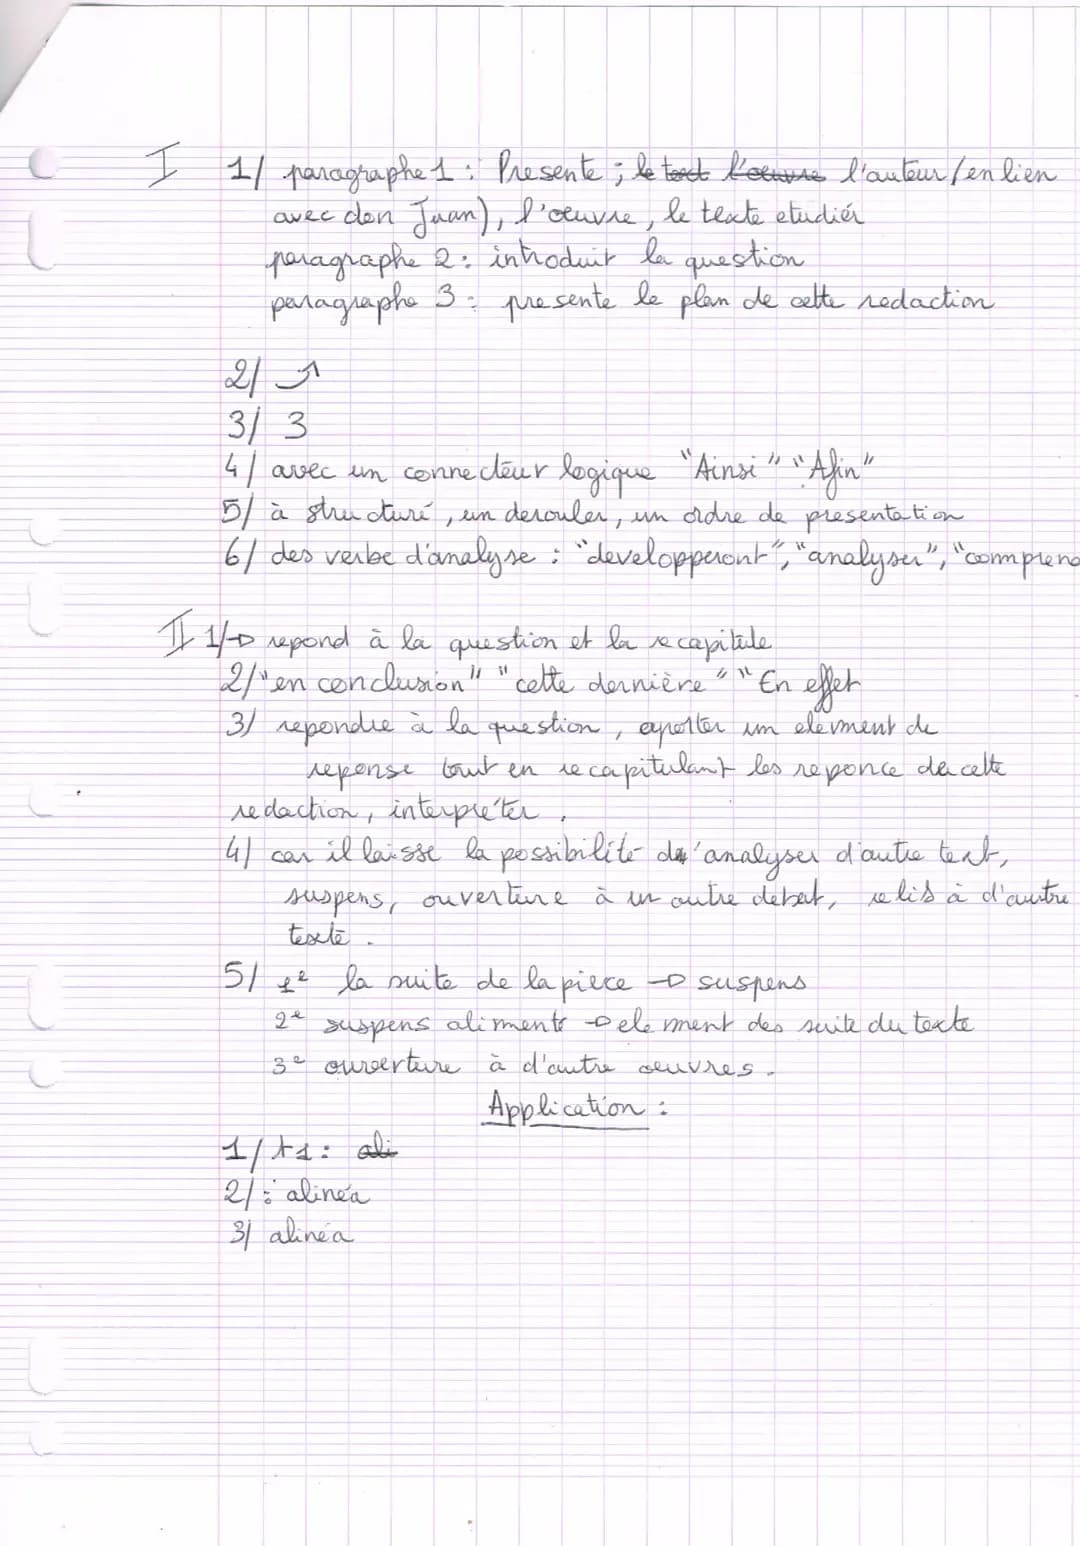 I 1/ paragraphe 1 : Presente ; le text l'oeuvre l'auteur (en lien
avec don Juan), l'oeuvre, le texte etudiér
paragraphe 2 : introduit la question
paragraphe 3 : presente le plan de cette redaction
2/ ⤴
3/ 3
4/ avec un connecteur logique "Ainsi" "Afin"
5/ à structuré, un derouler, un ordre de presentation
6/ des verbe d'analyse : "developperont", "analyser", "comprend
II 1/→ repond à la question et la recapitule
2/ "en conclusion" "cette dernière" "En effet
3/ repondre à la question, apporter un element de
reponse tout en recapitulant les reponce de cette
redaction, interpréter.
4/ car il laisse la possibilité d'analyser d'autre text,
suspens, ouverture à un autre debat, relis à d'autre
texte.
5/ 1e la suite de la piece → suspens
2e suspens alimente → element des suite du texte
3e ouverture à d'autre oeuvres.
Application :
1/ t1 : ali
2/ : alinéa
3/ alinéa